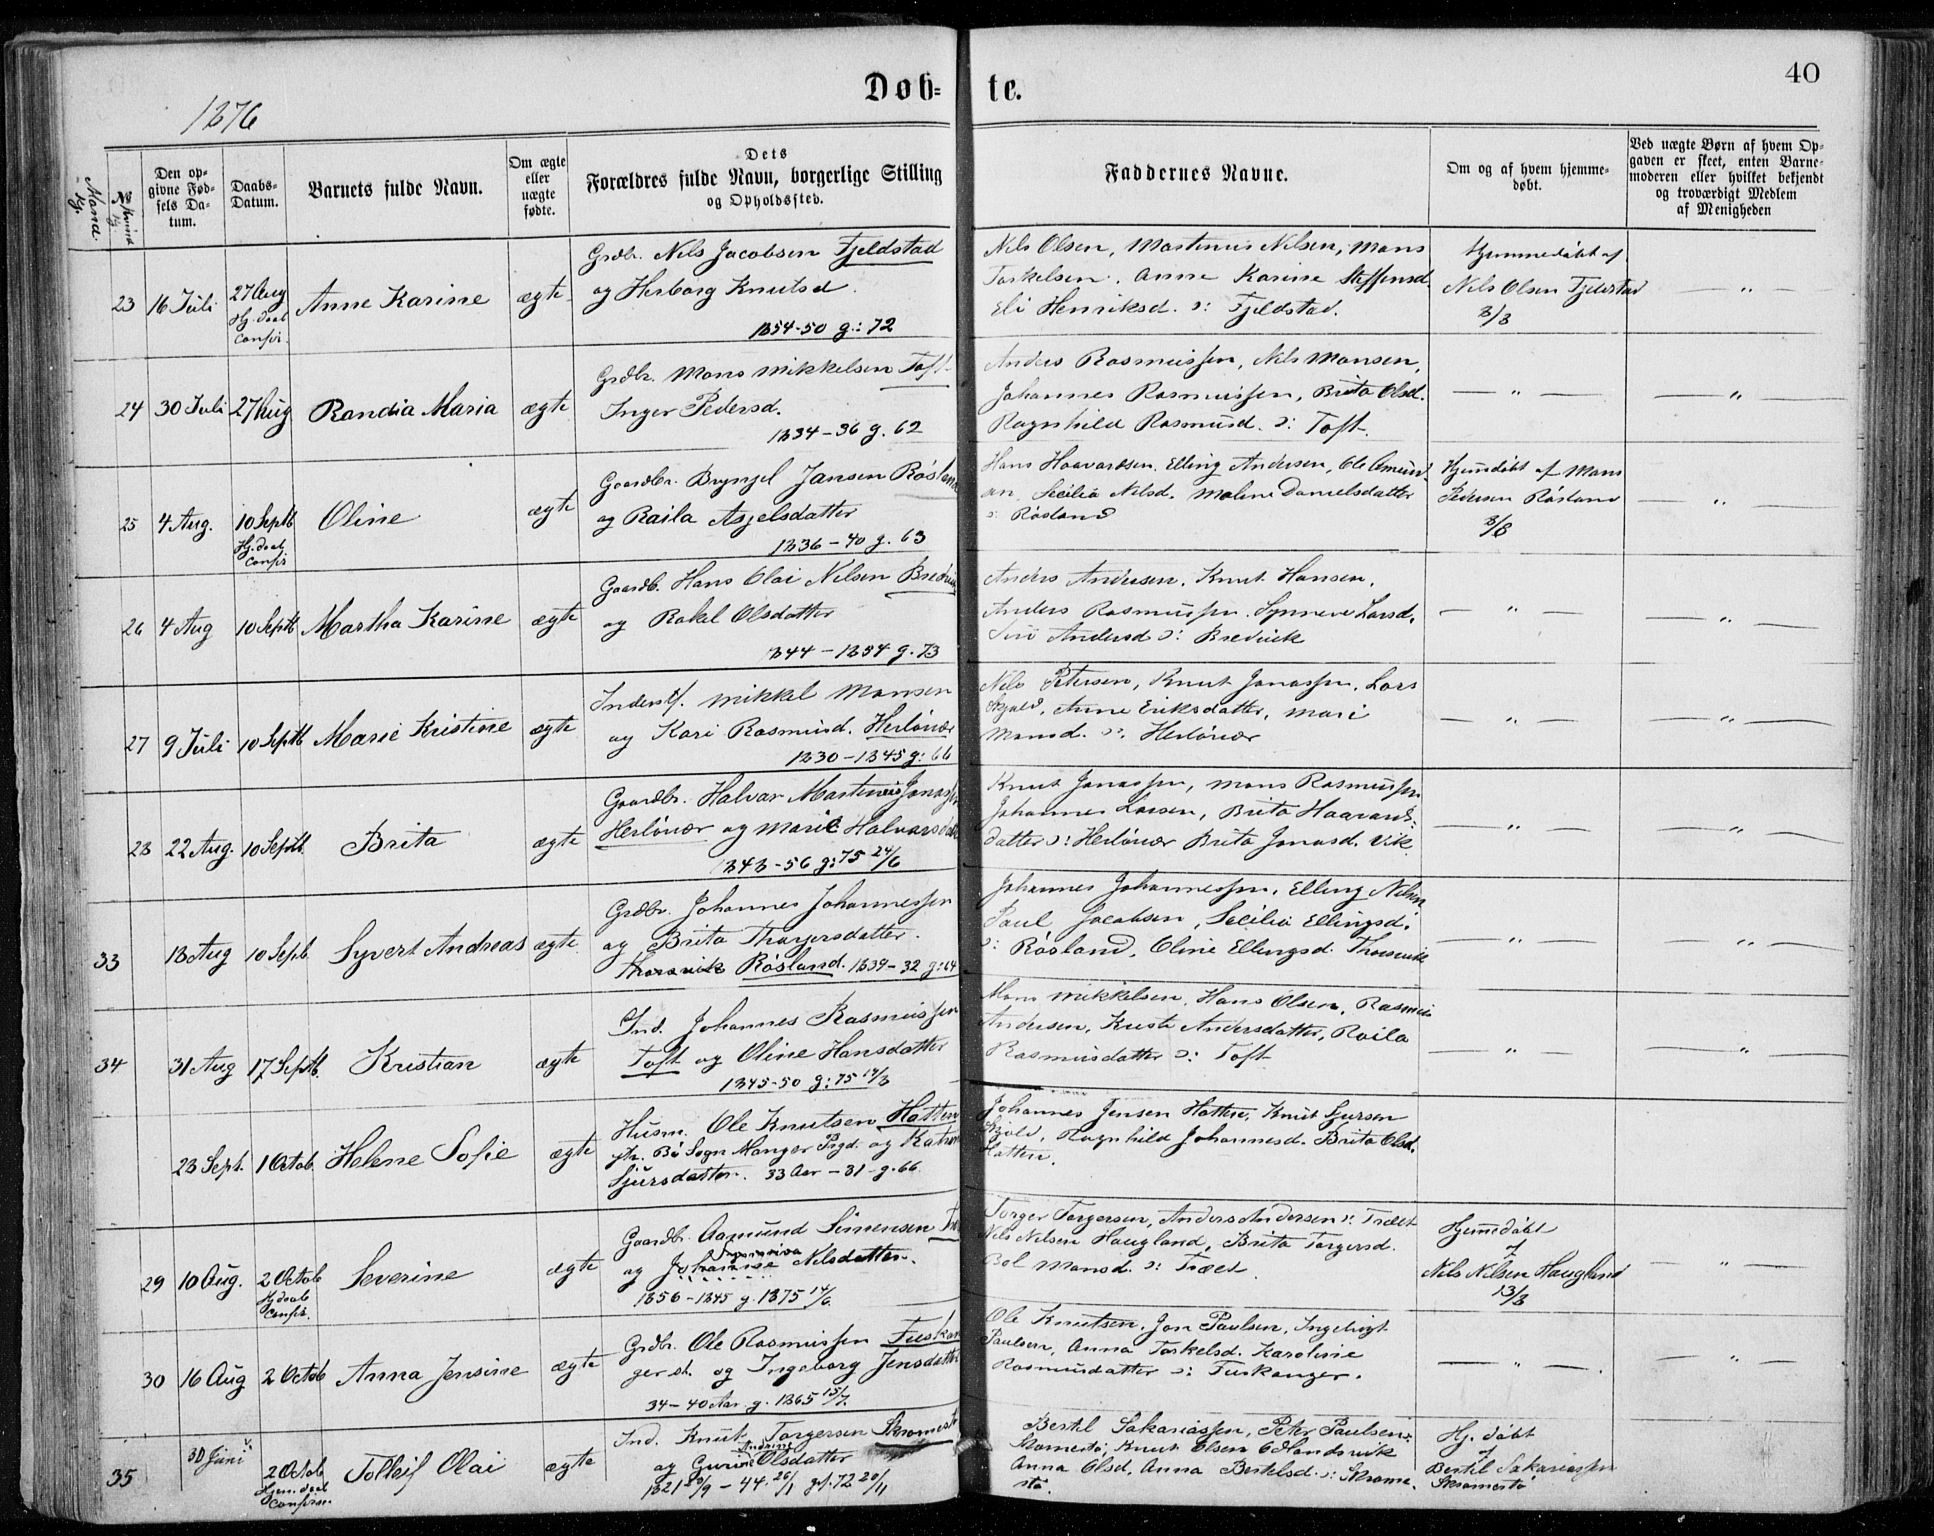 Døb= te.
40
1876
Mand
kj.
№ Kvind
kj.
Den op-
givne Fød-
sels Da-
tum.
Daabs-
Datum.
Barnets fulde Navn.
Om ægte
eller
uægte
fødte.
Dets
Forældres fulde Navn, borgerlige Stilling
og Opholdssted.
Faddernes Navne.
Om og af hvem hjemme-
døbt.
Ved uægte Børn af hvem Op-
gaven er skeet, enten Barne-
moderen eller hvilket bekjendt
og troværdigt Medlem
af Menigheden
23 16 Juli 27 Aug Anne Karine ægte
Hj. daab
Confir.
Grdbr. Nils Jacobsen Fjeldstad
og Herborg Knutsd.
1854-50 g: 72
Nils Olsen, Martinus Nilsen, Mons
Torkelsen, Anne Karine Steffensd.
Eli Henriksd. ɔ: Fjeldstad.
Hjemmedøbt af
Nils Olsen Fjeldstad
8/8
— " —
24 30 Juli 27 Aug Randia Maria ægte
Grdbr. Mons Mikkelsen Toft
Inger Pedersd.
1834-36 g. 62
Anders Rasmussen, Nils Monsen,
Johannes Rasmussen, Brita Olsd.
Ragnhild Rasmusd. ɔ: Toft.
— " — — " —
25 4 Aug. 10 Septb Oline ægte
Hj. daab
Confir
Gaardbr. Bryngel Jansen Røsland
og Raila Asjelsdatter
1836-40 g. 63
Hans Haavardsen, Elling Andersen, Ole Amund-
sen, Secilia Nilsd. Malene Danielsdatter
ɔ: Røsland
Hjemdøbt af Mons
Pedersen Røsland
8/8
— " —
26 4 Aug 10 Septb Martha Karine ægte
Gaardb. Hans Olai Nilsen Bredvik
og Rakel Olsdatter
1844-1854 g. 73
Anders Andersen, Knut Hansen,
Anders Rasmussen, Synneve Larsd.
Siri Andersd ɔ: Bredvik
— " — — " —
27 9 Juli 10 Septb Marie Kristine ægte
Inderst. Mikkel Monsen
og Kari Rasmusd. Herlövær
1830-1845 g: 66
Nils Petersen, Knut Jonassen, Lars
Skjold, Anne Eriksdatter, Mari
Monsd. ɔ: Herlövær
— " — — " —
28 22 Aug. 10 Septb. Brita ægte
Gaardbr. Halvar Martinus Jonassen
Herlövær og Marie Halvarsdatter
1848-56 g: 75 24/6
Knut Jonassen, Mons Rasmussen
Johannes Larsen, Brita Haavards-
datter ɔ: Herlövær Brita Jonasd. Vik
— " — — " —
33 18 Aug 10 Sept. Syvert Andreas ægte
Grdbr. Johannes Johannessen
og Brita Thorgersdatter
Thorsvik Røsland. 1839-32 g: 64
Johannes Johannessen, Elling Nilsen
Paul Jacobsen, Secilia Ellingsd.
ɔ: Røsland, Oline Ellingsd. Thorsvik
— " — — " —
34 31 Aug 17 Septb. Kristian ægte
Ind. Johannes Rasmussen
Toft og Oline Hansdatter
1845-50 g: 75 14/3
Mons Mikkelsen, Hans Olsen, Rasmus
Andersen, Kristi Andersdatter, Raila
Rasmusdatter ɔ: Toft
— " — — " —
23 Sept. 1 Octob. Helene Sofie ægte
Husm. Ole Knutsen Hatten
Bø Sogn Manger Prgd. og Katrine
Sjursdatter. 33 Aar - 31 - g. 66
Johannes Jensen Hatten, Knut Sjursen
Skjold, Ragnhild Johannesd. Brita Olsd.
Hatten.
29 10 Aug. 2 Octob Severine ægte
Hj. daab
Confir.
Gaardbr. Aamund Simensen Træet
og Johanne Nilsdatter.
1856-1845 g. 1875 14/6
Torger Torgersen, Anders Andersen ɔ: Træet
Nils Nilsen Haugland, Brita Torgersd.
Bol Monsd. ɔ: Træet
Hjemdøbt
af
Nils Nilsen Haugland
13/8
— " —
30 16 Aug 2 Octob Anna Jensine ægte
Grdbr. Ole Rasmussen Fuskan
ger st. og Ingeborg Jensdatter
34-40 Aar g. 1865 15/7.
Ole Knutsen, Jon Paulsen, Ingebrigt
Paulsen, Anna Torkelsd. Karoline
Rasmusdatter ɔ: Fuskanger.
— " — — " —
35 30 Juni 2 Octob Tolleif Olai ægte
Hjem. daab
Confirm.
Ind. Knut Torgersen Skromestø
og Gurine Olsdatter
1821 - 44 26/1 gf. 72 20/11
Bertil Sakariassen, Peter Paulsen
Skomestø, Knut Olsen Odlandsvik
Anna Olsd, Anna Bertelsd. ɔ: Skrome-
stø.
Hj. døbt
af
Bertil Sakariassen
Skromestø